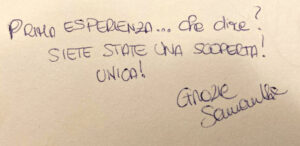 PRIMA ESPERIENZA... che dire?
SIETE STATE UNA SCOPERTA!
UNICA!
GRAZIE
Samantha